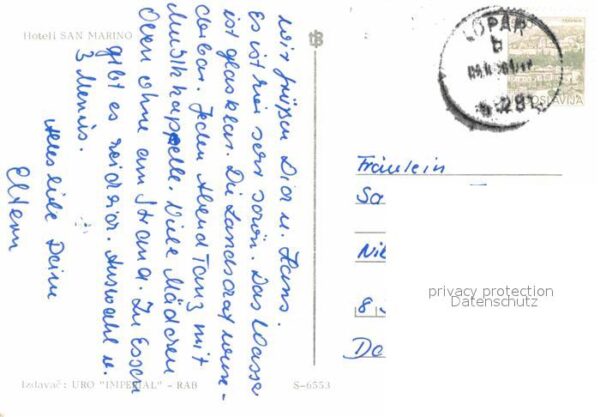 Hoteli SAN MARINO
Wir grüßen Dich u. Hans.
Es ist hier sehr schön. Das Wasser
ist glasklar. Die Landschaft wunder-
bar. Jeden Abend Tanz mit
Musikkapelle. Viele Mädchen
Oben ohne am Strand. Zu Essen
gibt es reichlich. Auswahl v.
3 Menüs.
Alles liebe Deine
Eltern
Izdavač: URO "IMPERIAL" - RAB
S-6553
LOPAR
JUGOSLAVIJA
Fräulein
Sa
Nik
8
Da
privacy protection
Datenschutz